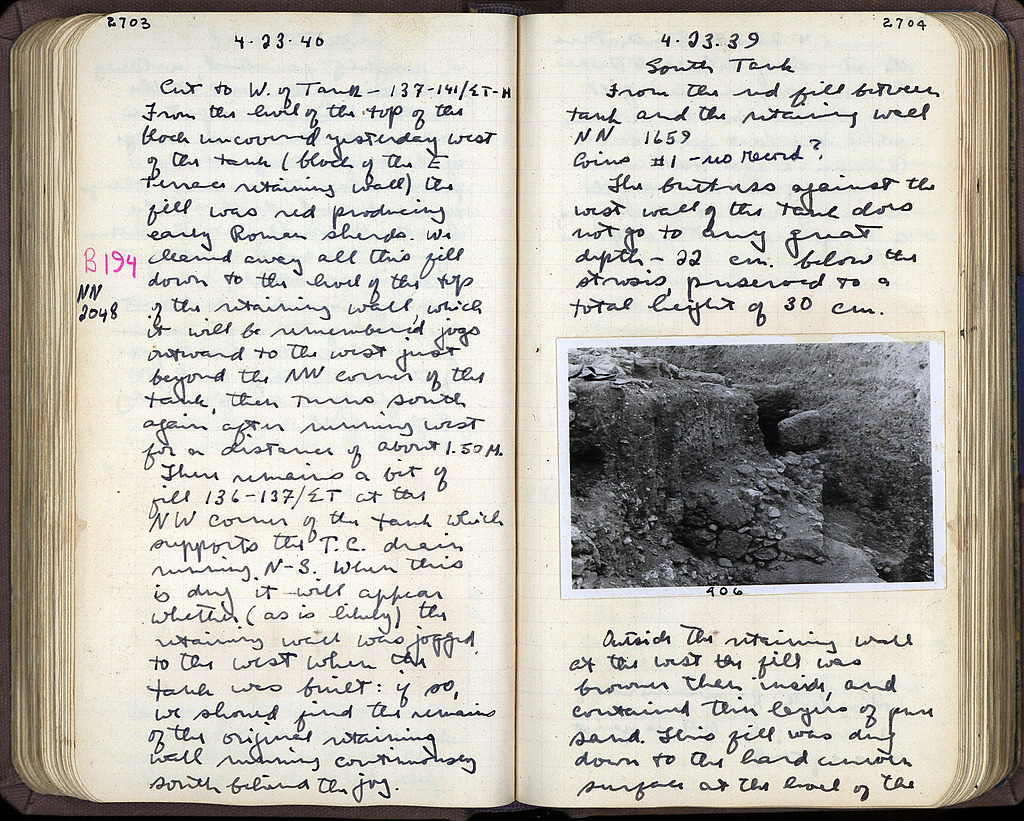 2703
4.23.40
Cut to W. of Tank - 137-141/ΣΤ-Η
From the level of the top of the
block uncovered yesterday west
of the tank (block of the E
Terrace retaining wall) the
fill was red producing
early Roman sherds. We
cleared away all this fill
down to the level of the top
of the retaining wall, which
it will be remembered jogs
outward to the west just
beyond the NW corner of the
tank, then turns south
again after running west
for a distance of about 1.50 M.
There remains a bit of
fill 136-137/ΣΤ at the
NW corner of the tank which
supports the T.C. drain
running N-S. When this
is dug it will appear
whether (as is likely) the
retaining wall was jogged
to the west when the
tank was built: if so,
we should find the remains
of the original retaining
wall running continuously
south behind the jog.
B194
NN
2048
2704
4.23.39
South Tank
From the red fill between
tank and the retaining wall
NN 1659
Coins #1 - no record?
The buttress against the
west wall of the tank does
not go to any great
depth - 22 cm. below the
strosis, preserved to a
total height of 30 cm.
406
Outside the retaining wall
at the west the fill was
browner than inside, and
contained thin layers of pure
sand. This fill was dug
down to the hard uneven
surface at the level of the